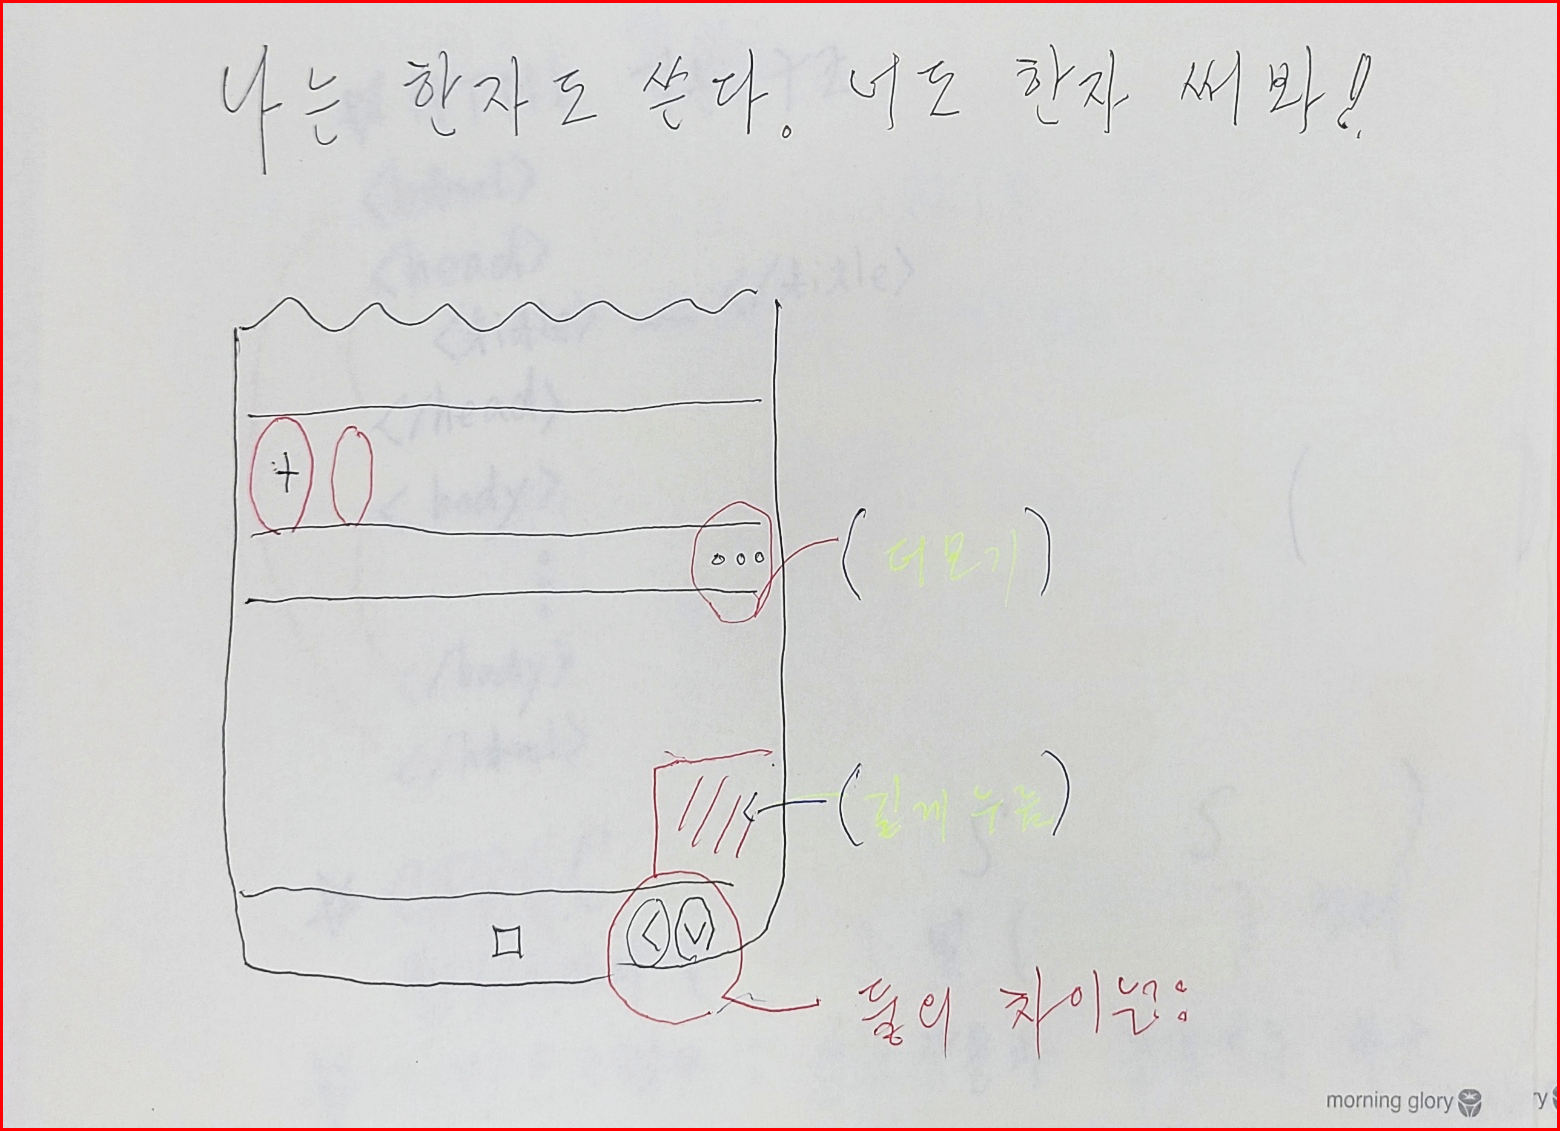 나는 한자도 쓴다. 너도 한자 써봐!
+
(더보기)
(길게 누름)
둘의 차이는?:
morning glory
ry